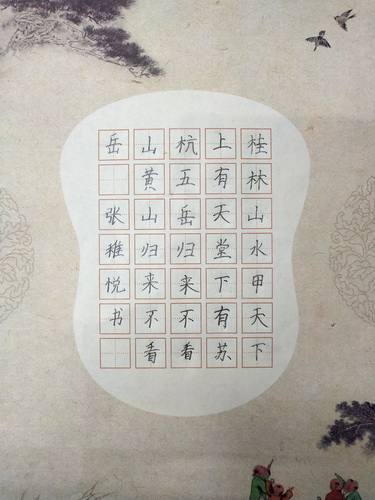 桂林山水甲天下
上有天堂下有苏
杭五岳归来不看
山黄山归来不看
岳 张稚悦书